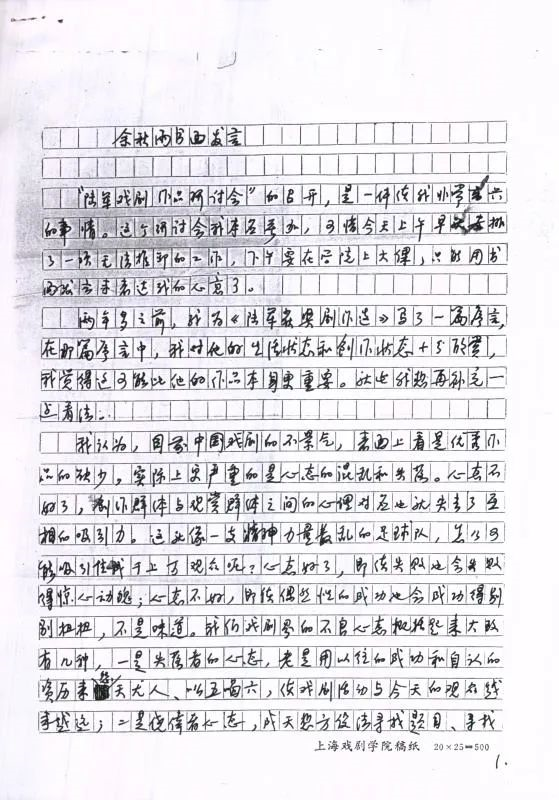 余秋雨书面发言
“陆军戏剧作品研讨会”的召开，是一件使我非常高兴
的事情。这个研讨会我本应参加，可惜今天上午早已安排
了一项无法推卸的工作，下午要在学院上大课，只能用书
面发言来表达我的心意了。
两年多之前，我为《陆军获奖剧作选》写了一篇序言，
在那篇序言中，我对他的生活状态和创作状态十分欣赏，
我觉得这可能比他的作品本身更重要。就此我想再补充一
点看法。
我认为，目前中国戏剧的不景气，表面上看是优秀作
品的缺少，实际上更严重的是心态的混乱和失落。心态不
好了，剧作群体与观赏群体之间的心理对应也就失去了互
相的吸引力。这就像一支精神力量散乱的足球队，怎么可
能吸引住成千上万观众呢？心态好了，即使失败也会失败
得惊心动魄；心态不好，即使偶然性的成功也会成功得别
别扭扭，不是味道。我们戏剧界的不良心态概括起来大致
有几种，一是失落者的心态，老是用以往的成功和自认的
资历来怨天尤人、吆五喝六，使戏剧活动与今天的观众越
来越远；二是侥倖者心态，成天想方设法寻找题目、寻找
上海戏剧学院稿纸 20×25＝500
1.